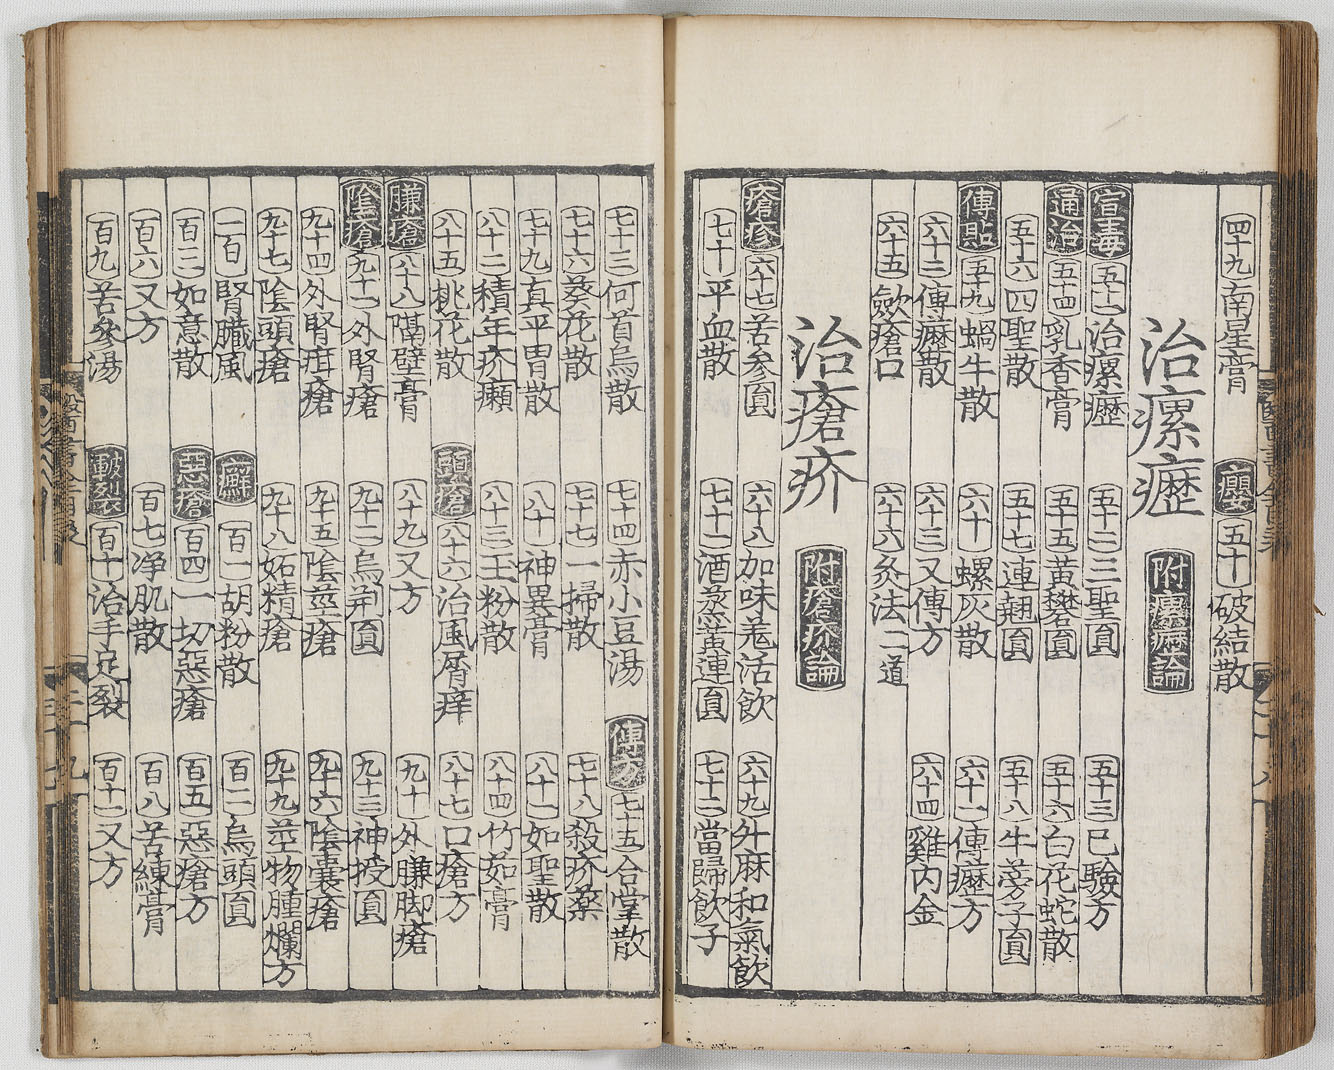 四十九南星膏 癭 五十破結散
治瘰癧 附瘰癧論
宣毒 五十一治瘰癧 五十二三聖圓 五十三已驗方
通治 五十四乳香膏 五十五黃礬圓 五十六白花蛇散
五十八四聖散 五十七連翹圓 五十八牛蒡子圓
傅貼 五十九蝸牛散 六十螺灰散 六十一傅癧方
六十二傅癧散 六十三又傅方 六十四雞內金
六十五斂瘡口 六十六灸法二道
治瘡疥 附瘡疥論
瘡疹 六十七苦參圓 六十八加味羗活飲 六十九升麻和氣飲
七十平血散 七十一酒蒸黃連圓 七十二當歸飲子
七十三何首烏散 七十四赤小豆湯 傅方 七十五合掌散
七十六葵花散 七十七一掃散 七十八殺疥藥
七十九真平胃散 八十神異膏 八十一如聖散
八十二積年疥癩 八十三玉粉散 八十四竹茹膏
八十五桃花散 頭瘡 八十六治風屑痒 八十七口瘡方
臁瘡 八十八隔壁膏 八十九又方 九十外臁脚瘡
陰瘡 九十一外腎瘡 九十二烏荊圓 九十三神授圓
九十四外腎疳瘡 九十五陰莖瘡 九十六陰囊瘡
九十七陰頭瘡 九十八妬精瘡 九十九莖物腫爛方
一百腎臟風 癬 百一胡粉散 百二烏頭圓
百三如意散 惡瘡 百四一切惡瘡 百五惡瘡方
百六又方 百七淨肌散 百八苦練膏
百九苦參湯 皸裂 百十治手足裂 百十一又方